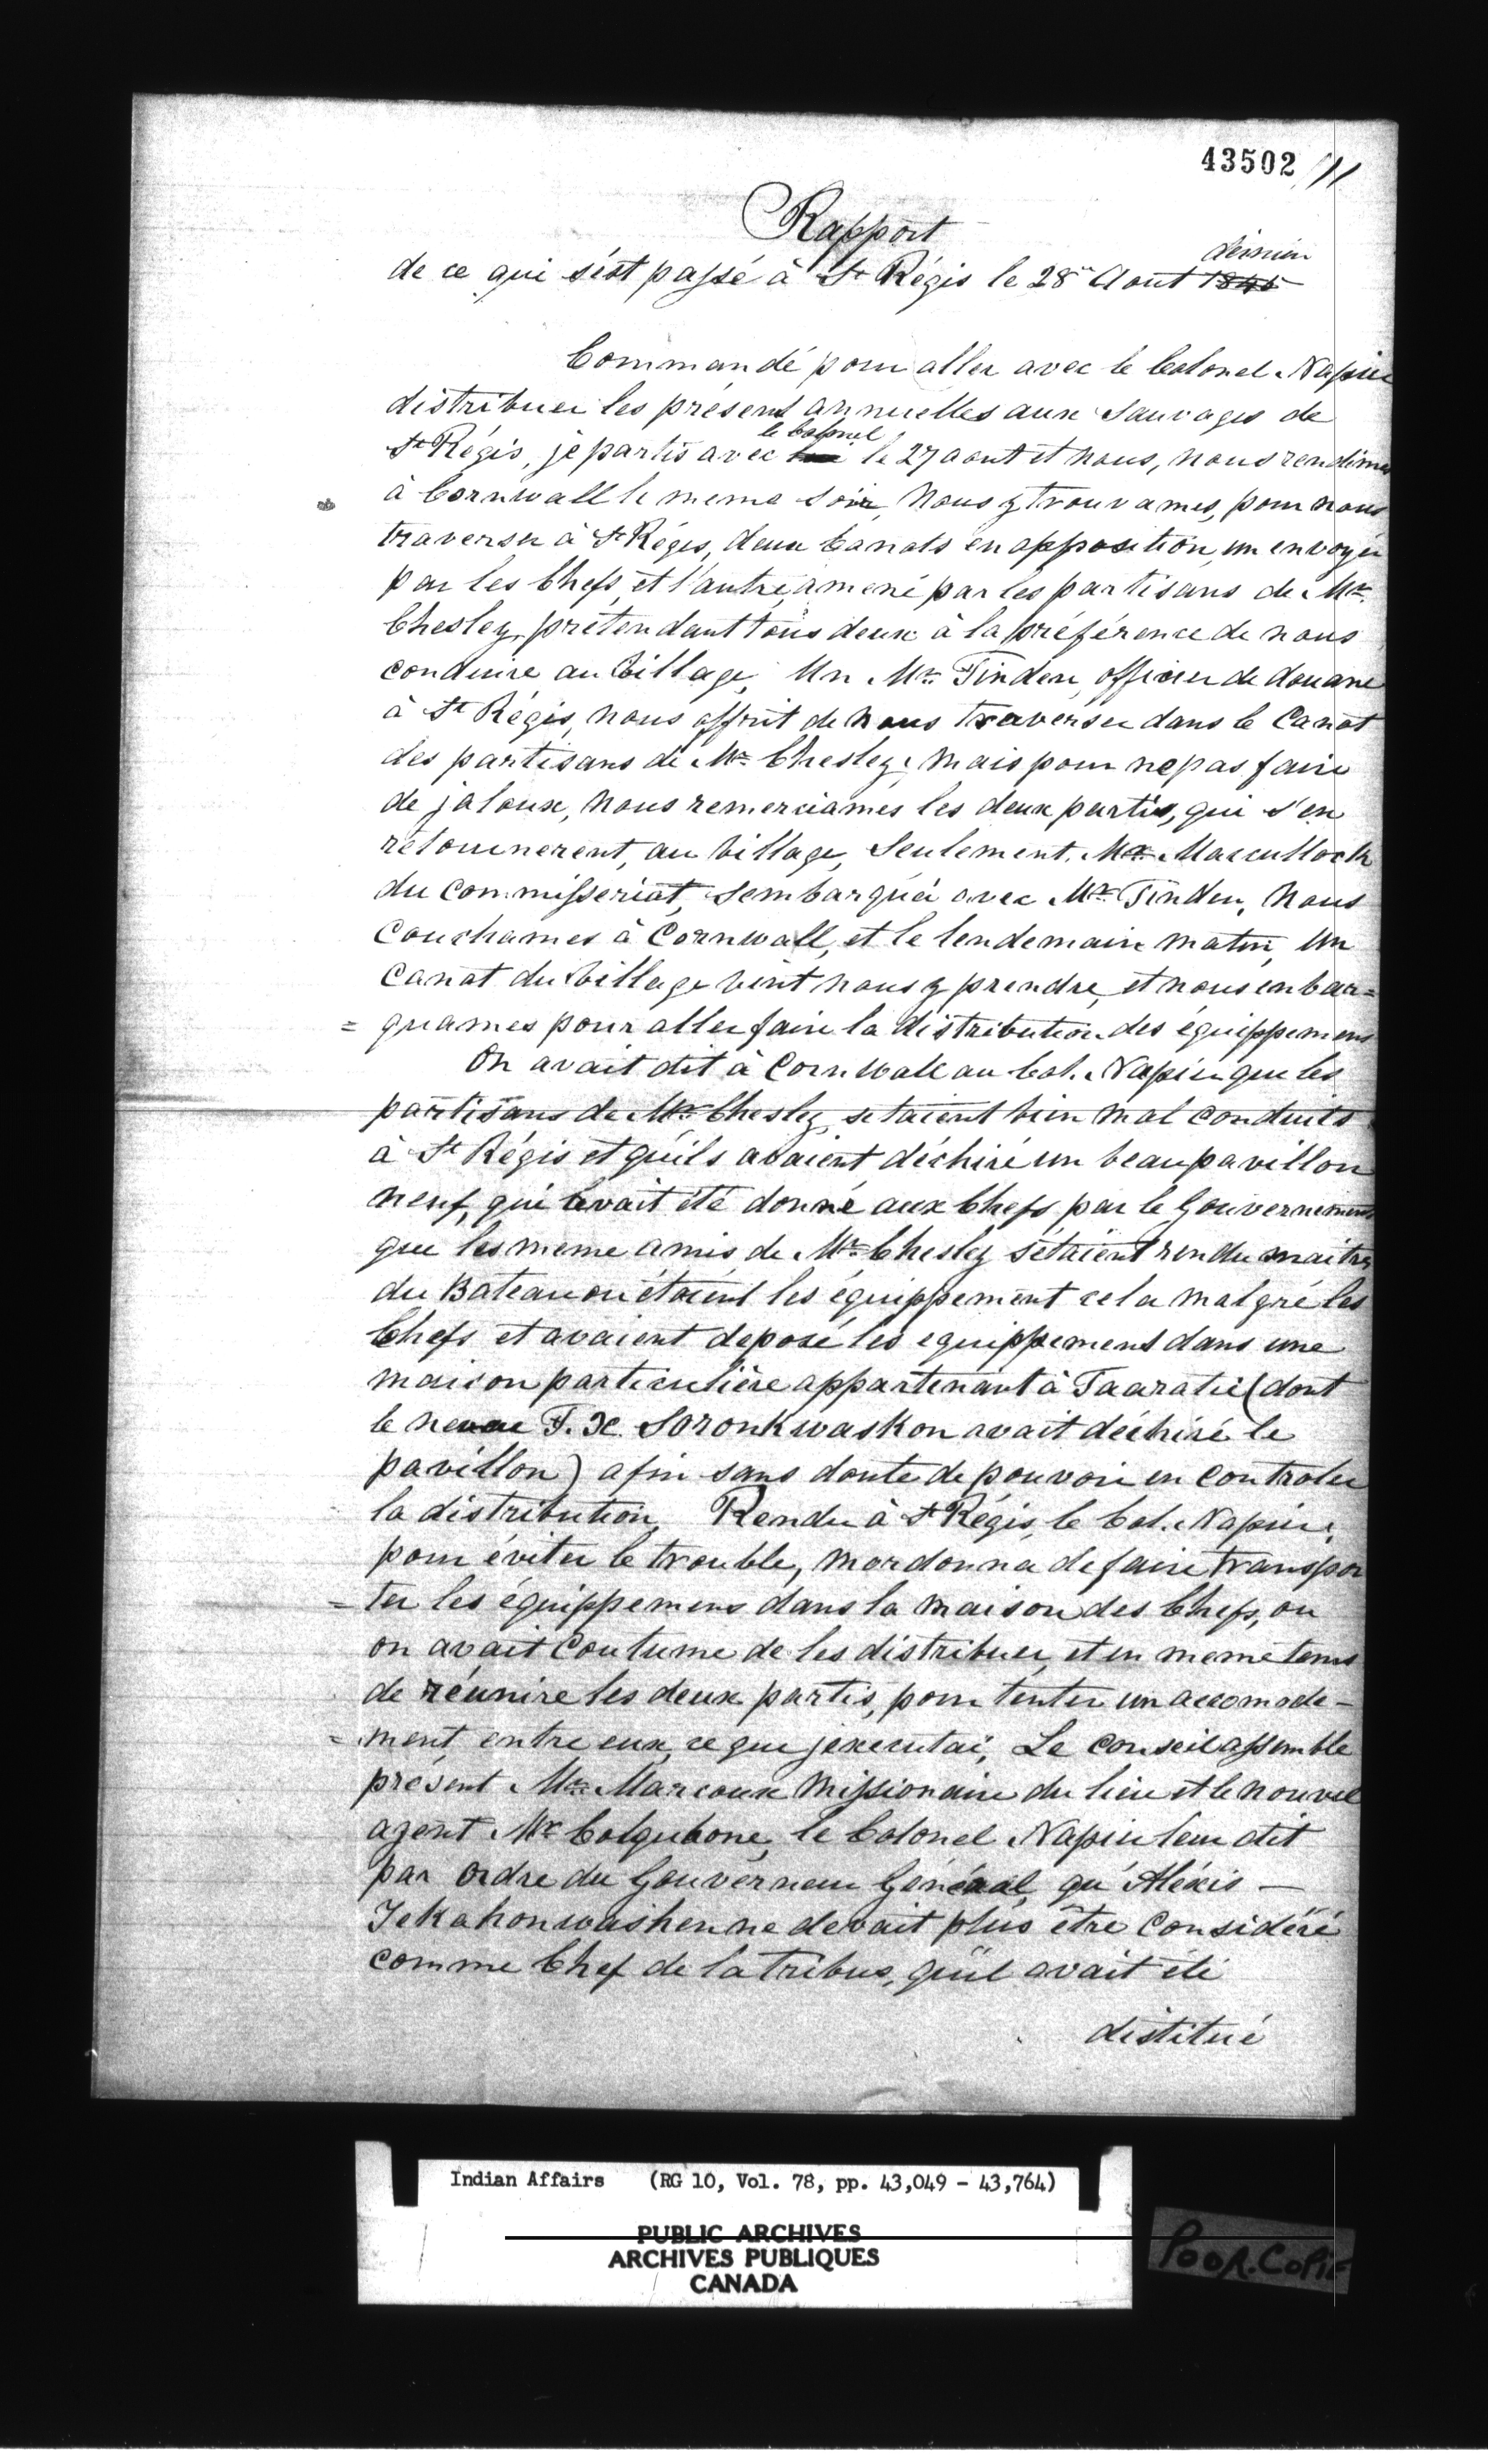 43502 /11
Rapport
dernier
de ce qui s'est passé à St Régis le 28 Aout 1845
Commandé pour aller avec le Colonel Napier
distribuer les présens annuelles aux Sauvages de
le Colonel
St Régis, je partis avec lui le 27 aout et nous, nous rendimes
à Cornwall le meme soir, nous y trouvames, pour nous
traverser à St Régis, deux Canots en opposition, un envoyé
par les Chefs, et l'autre, amené par les partisans de Mr.
Chesley, prétendant tous deux à la préférence de nous
conduire au Village, Un Mr. Tinden, officier de douane
à St Régis, nous offrit de nous traverser dans le Canot
des partisans de Mr Chesley, mais pour ne pas faire
de jaloux, nous remerciames les deux partis, qui s'en
retournerent, au Village, Seulement, Mr. Marcullock
du Commisseriat, sembarqua avec Mr Tinden, nous
Couchames à Cornwall, et le lendemain matin, un
Canot du Village vint nous y prendre, et nous enbar=
= quames pour aller faire la distribution des équippemens
On avait dit à Cornwall au Col. Napier que les
partisans de Mr Chesley, setaient bien mal conduits
à St Régis et qu'ils avaient déchiré un beau pavillon
neuf, qui avait été donné aux Chefs par le Gouvernement
que les meme amis de Mr Chesley s'étaient rendu maitres
du Bateau ou étaient les équippement cela malgré les
Chefs et avaient deposé les equippemens dans une
maison particulière appartenant à Taaratie (dont
le neveu F. X. Soronkwaskon avait déchiré le
pavillon) afin sans doute de pouvoir en controler
la distribution, Rendu à St Régis, le Col. Napier,
pour éviter le trouble, mordonna de faire transpor
= ter les équippemens dans la maison des Chefs, ou
on avait Coutume de les distribuer, et en meme tems
de réunire les deux partis, pour tenter un accomode-
= ment entre eux, ce que jexecutai, Le Conseil assemble
présent Mr. Marcoux Missionaire du lieu et le nouvel
agent Mr Colquhone, le Colonel Napier leur dit
par ordre du Gouverneur Général, qu'Aléxis —
Tekahonwashen ne devait plus être Considéré
comme Chef de la Tribus, qu'il avait été
distitué
Indian Affairs (RG 10, Vol. 78, pp. 43,049 - 43,764)
PUBLIC ARCHIVES
ARCHIVES PUBLIQUES
CANADA
POOR. COPIE